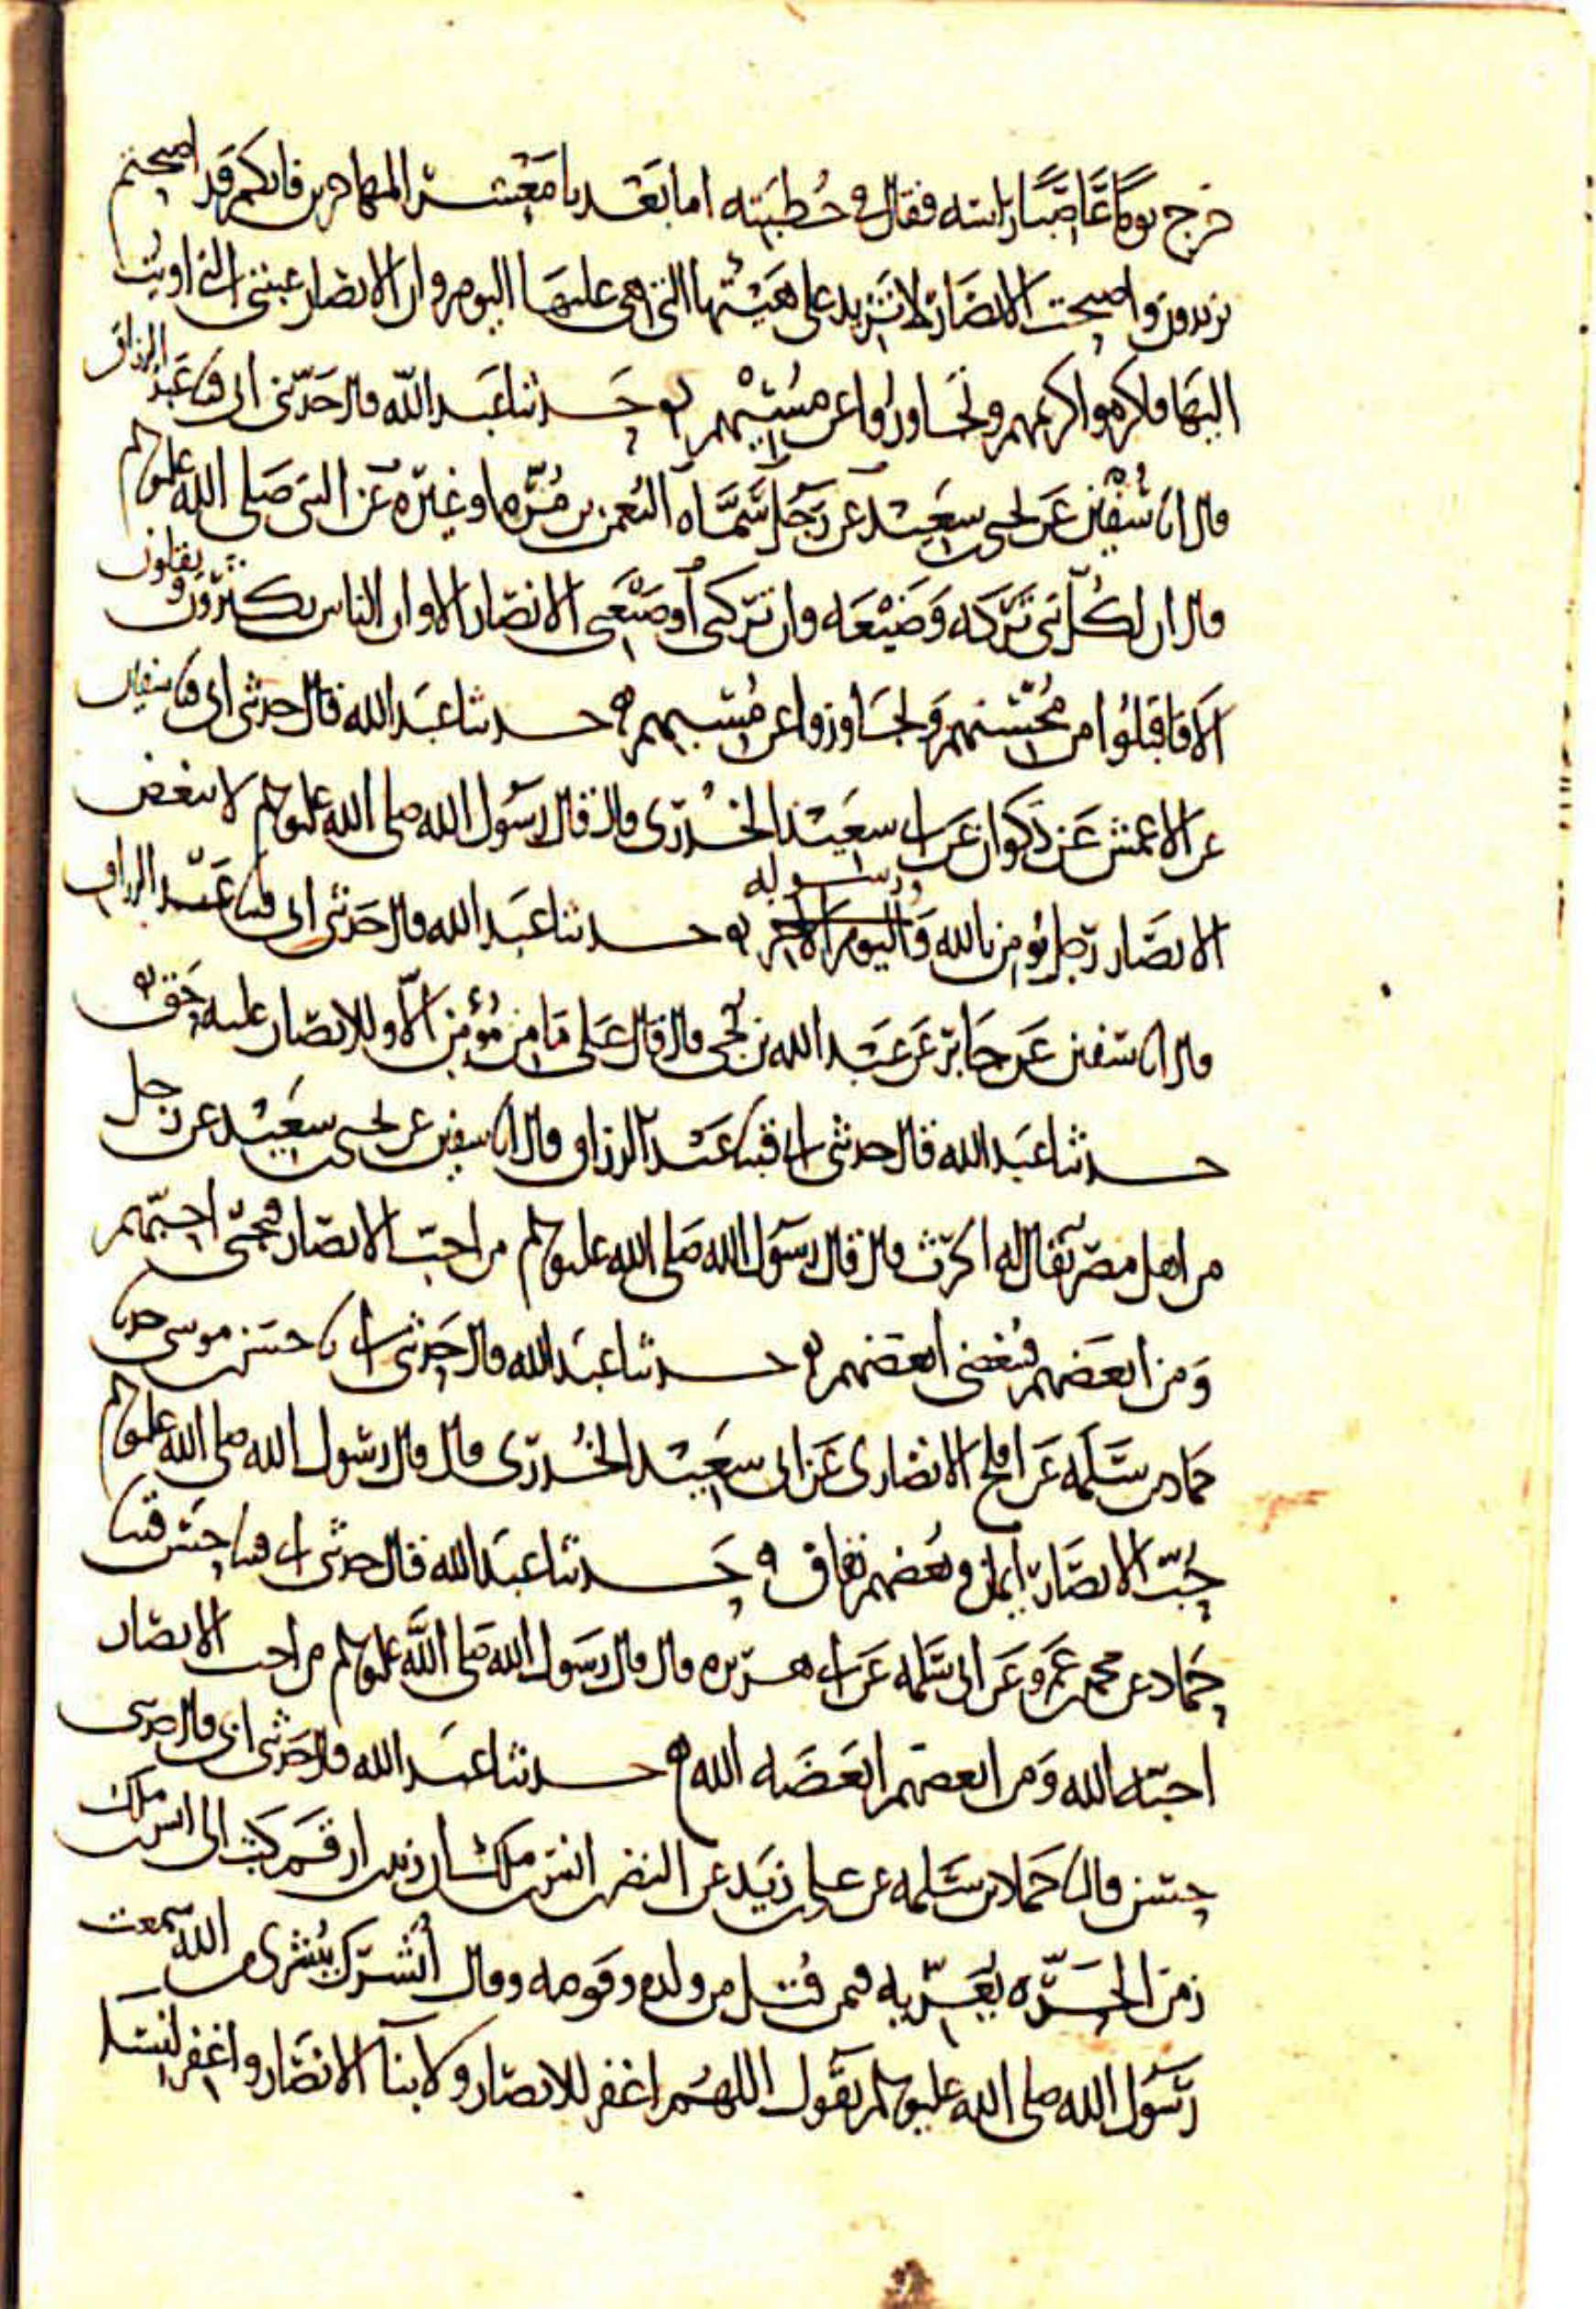 خرج يومًا عَاصِبًا راسه فقال في خُطبَته اما بَعْد يا مَعْشر المهاجرين فانكم قد اصبحتم
تزيدون واصبحت الانصَار لا تَزيد على هَيْئتها التي هي عليهَا اليوم وان الانصار عيبتي التي اويتُ
اليهَا فاكرموا كريمهم وتجَاوزوا عن مُسيْئهم ۞ حَدثنا عَبد الله قال حَدّثني ابي قثنا عَبد الرزاق
قال انا سُفين عَن يحيى سَعِيْد عن رَجُل سَمَّاه النُعمن بن مُرّه او غيرَه عَن النبي صَلى الله عليه وسلم
قال ان لكُل نبي تَرْكه وَضَيْعَه وان تَركتي اوضَيْعَتي الانصَار الا وان الناس يكثرُوْن ويقلون
اَلا فاقبَلُوا من مُحْسنهم وَتجَاوزوا عن مُسيهم ۞ حدثنا عَبد الله قال حدثني ابي قثنا سفيان
عن الاعمش عَن ذكوان عَن ابي سعَيْد الخُدرَي قال قال رسُول الله صلى الله عليه وسلم لا يبغض
الانصَار رَجل يُومن بالله وَرسوله ۞ حدثنا عَبد الله قال حَدثني ابي قثنا عَبْد الرزاق
قال انا سفين عَن جَابر عَن عَبْد الله بن نُجي قال قال عَلي مَا من مُؤمن الّا وللانصَار عليه حَق ۞
حدثنا عَبد الله قال حدثني ابي قثنا عَبْد الرزاق قال انا سفين عن يحيى سعَيْد عن رجل
من اهل مصر يُقال له الحرث قال قال رسَول الله صَلى الله عليه وسلم من احبّ الانصَار فبحبّي احبّهم
وَمن ابغَضهم فببُغضي ابغضهم ۞ حدثنا عَبد الله قال حَدثني ابي نا حسَن موسى حدثنا
حَماد بن سَلَمه عَن افلح الانصَاري عَن ابي سعَيْد الخُدرَي قال قال رسُول الله صلى الله عليه وسلم
حُبّ الانصَار ايمان وبُغضهم نفاق ۞ حَدثنا عَبد الله قال حدثني ابي قثنا حَسَن قثنا
حَماد عن محمد عَمرو عَن ابي سَلمه عَن ابي هرَيره قال قال رسَول الله صَلى الله عليه وسلم من احب الانصَار
احبّه الله وَمن ابغضهم ابغَضَه الله ۞ حدثنا عَبد الله قال حَدثني ابي قال حدثني
حسَن قال نا حَماد بن سَلمه عن علي زيَد عن النضر انس ملك ان زيد ارقَم كتب الى انس ملك
زمَن الحَرّه يُعَزّيه فيمن قُتل من ولده وقومه وقال اُبشّرك ببُشرى من الله سمعت
رسَول الله صلى الله عليه وسلم يقَول اللهُم اغفر للانصَار ولابنآ الانصَار واغفر لنسَآ